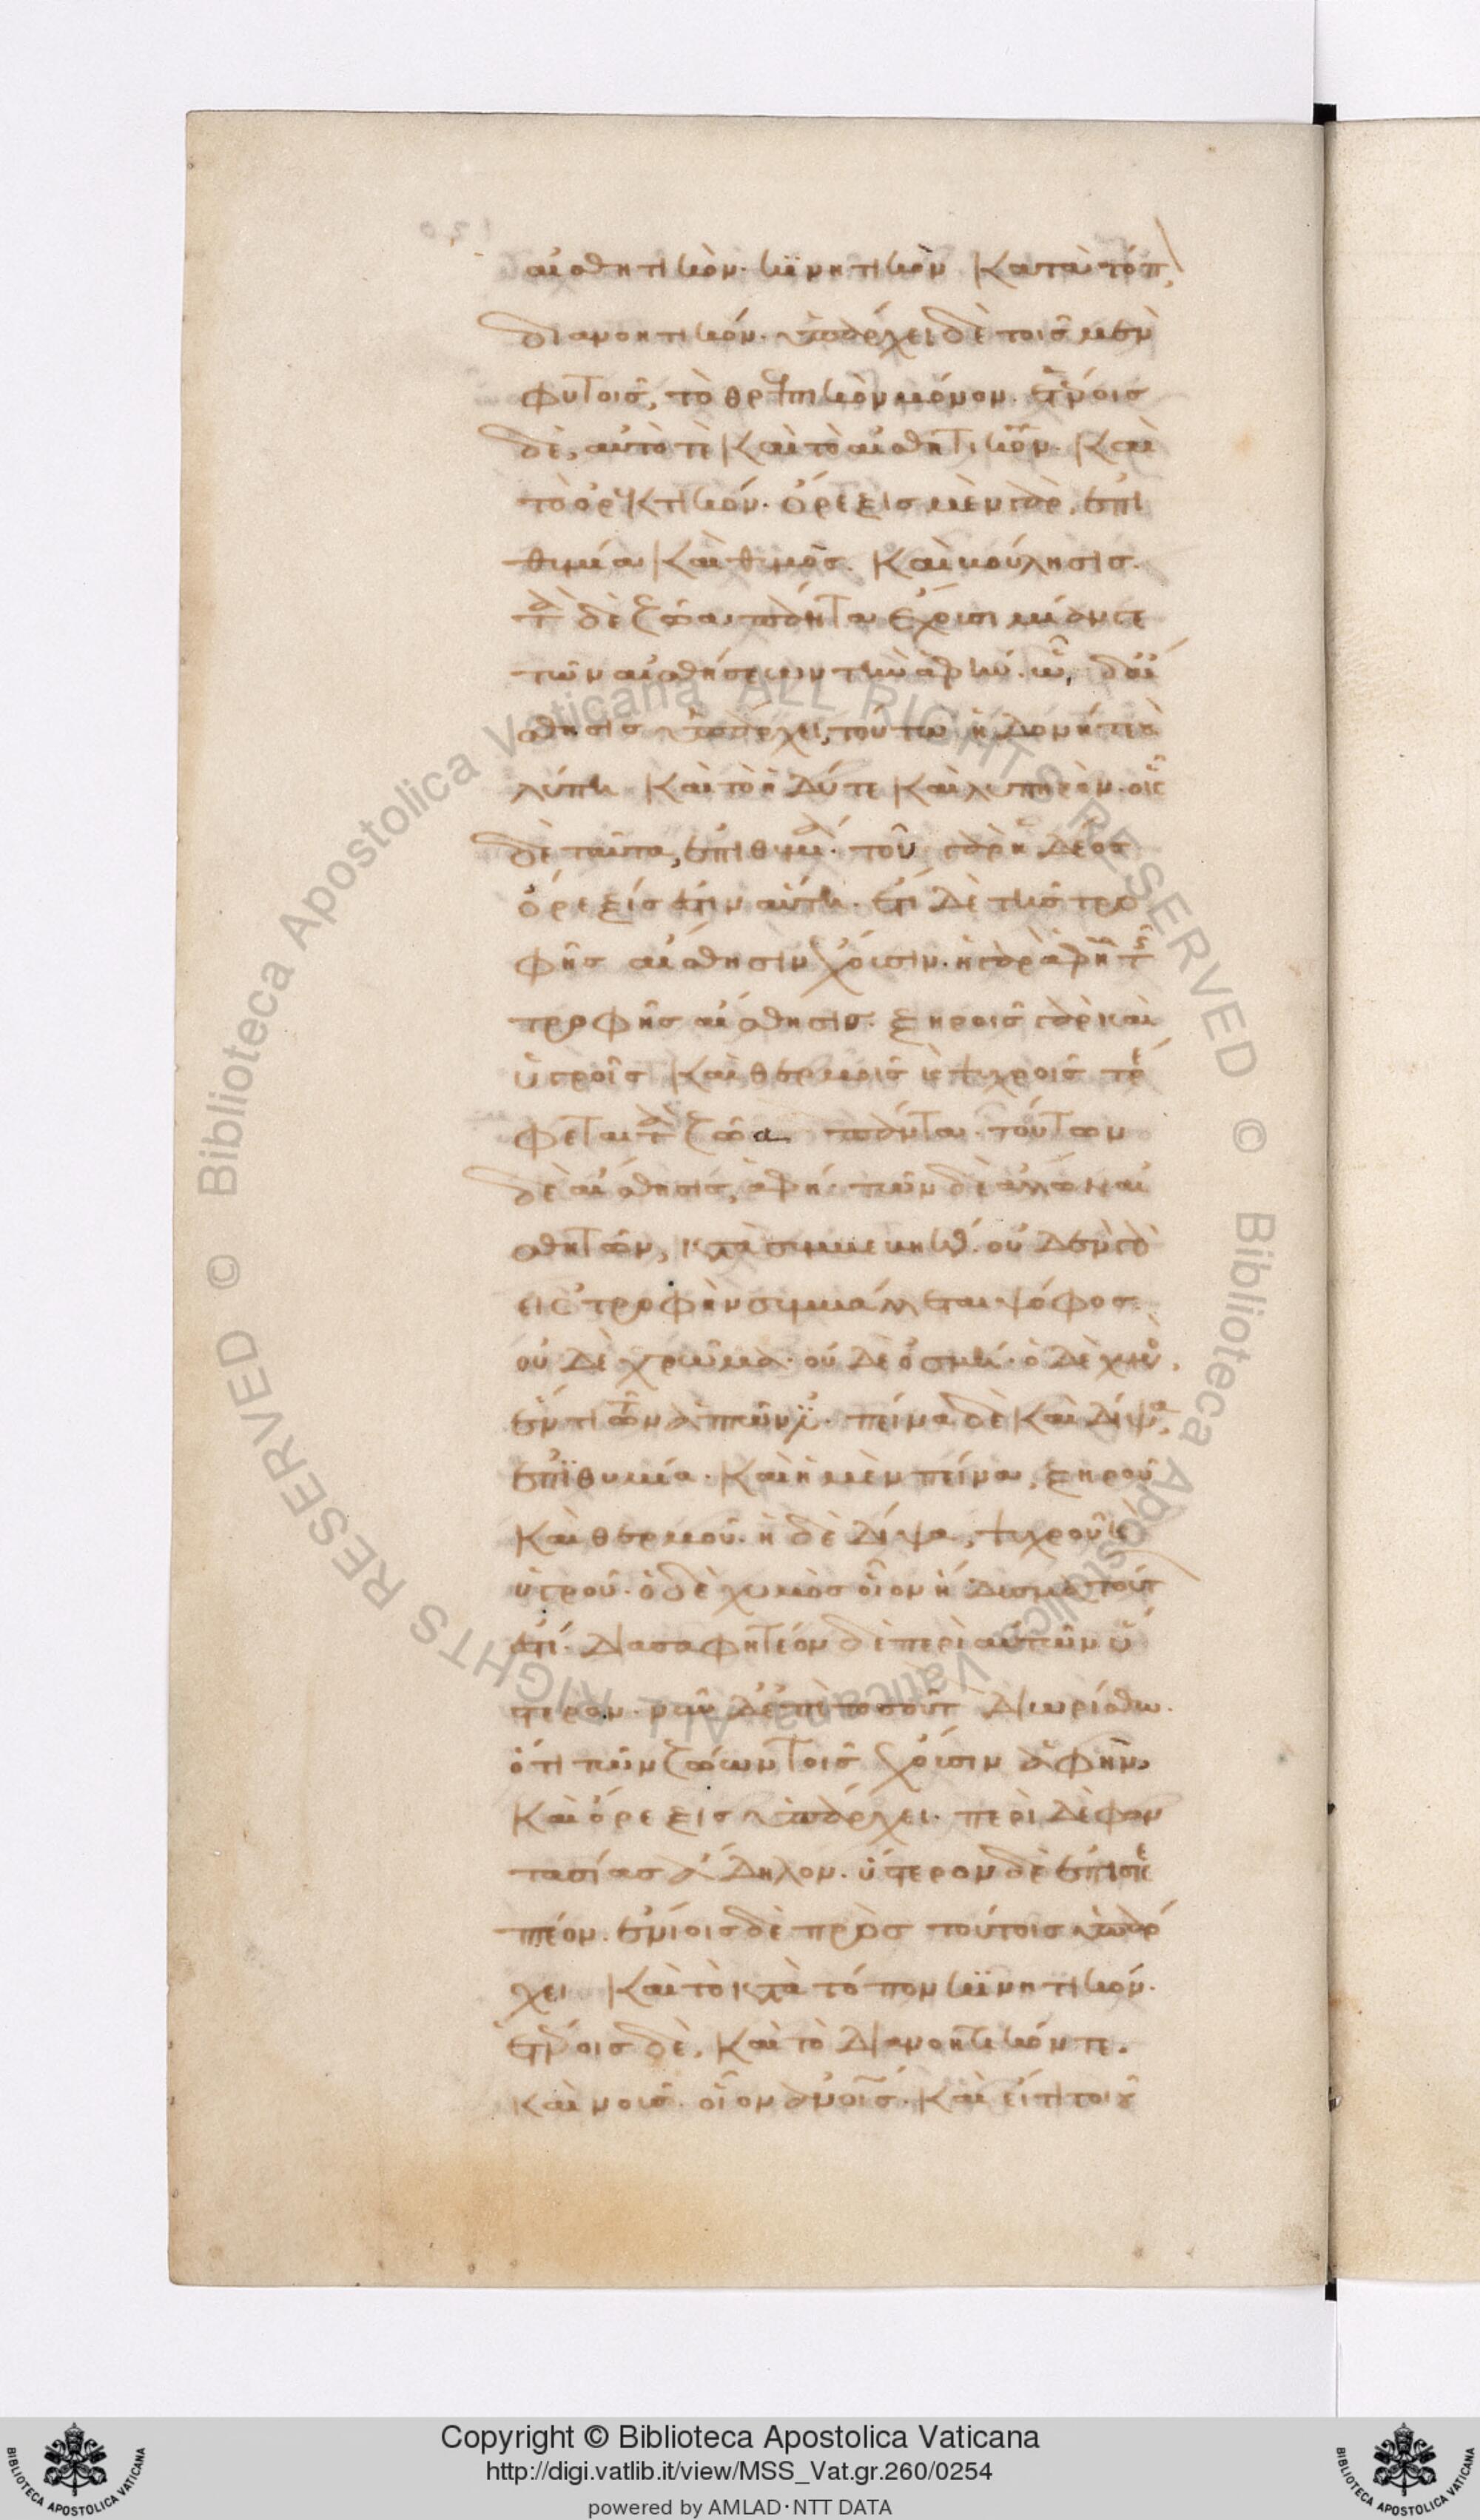 αἰσθητικὸν· κϊνητικὸν κατὰ τόπ
διανοητικόν· ὑπάρχει δὲ τοῖς μὲν
φυτοῖς, τὸ θρεπτικὸν μόνον. ἑτέροις
δὲ, αὐτό τὲ καὶ τὸ αἰσθητικόν. καὶ
τὸ ὀρεκτικόν. ὄρεξις μὲν γὰρ, ἐπι
θυμία καὶ θυμὸς. καὶ βούλησις.
τὰ δὲ ζῶα πάντα ἔχουσι μίαν γε
τῶν αἰσθήσεων τὴν ἁφήν. ᾧ, δ αἴ
σθησις ὑπάρχει, τούτω ἡδονή τὲ καὶ
λύπη καὶ τὸ ἡδύ τε καὶ λυπηρὸν. οἷς
δὲ ταῦτα, ἐπιθυμία. τοῦ γὰρ ἡδέος
ὄρεξίς ἐστιν αὕτη. ἔτι δὲ τῆς τρο
φῆς αἴσθησιν ἔχουσιν. ἡ γὰρ ἁφὴ τῆς
τροφῆς αἴσθησις. ξηροῖς γὰρ καὶ
ὑγροῖς καὶ θερμοῖς καὶ ψυχροῖς τρέ
φεται τὰ ζῶα πάντα. τούτων
δὲ αἴσθησις, ἁφή. τῶν δὲ ἄλλων αἰ
σθητῶν, κατὰ συμβεβηκός. οὐδὲν γὰρ
εἰς τροφὴν συμβάλλεται ψόφος.
οὐδὲ χρῶμα. οὐδὲ ὀσμή. ὁ δὲ χυμὸς,
ἕν τι τῶν ἁπτῶν ἐστι. πεῖνα δὲ καὶ δίψα,
ἐπϊθυμία. καὶ ἡ μὲν πεῖνα, ξηροῦ
καὶ θερμοῦ. ἡ δὲ δίψα, ψυχροῦ καὶ
ὑγροῦ. ὁ δὲ χυμὸς οἷον ἥδυσμα τούτ
ἐστί. διασαφητέον δὲ περὶ αὐτῶν ὕ
στερον. νῦν δὲ ἐπὶ τοσοῦτ διωρίσθω.
ὅτι τῶν ζώων τοῖς ἔχουσιν ἁφὴν,
καὶ ὄρεξις ὑπάρχει. περὶ δὲ φαν
τασίας ἄδηλον. ὕστερον δὲ ἐπισκε
πτέον. ἐνίοις δὲ πρὸς τούτοις ὑπάρ
χει καὶ τὸ κατὰ τόπον κϊνητικόν.
ἑτέροις δὲ, καὶ τὸ διανοητικόν τε.
καὶ νοῦς. οἷον ἀνοις. καὶ εἴ τι τοιου